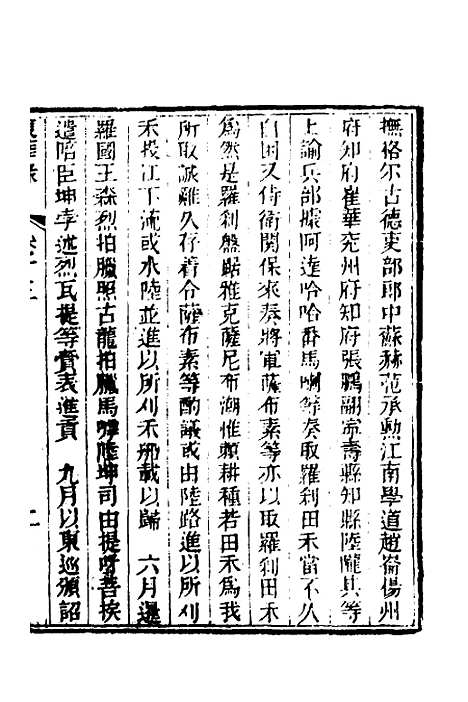 撫格爾古德吏部郎中蘇赫范承勲江南學道趙崙揚州
府知府崔華兖州府知府張鵬翮靈壽縣知縣陸隴其等
上諭兵部據阿達哈哈番馬喇等奏取羅刹田禾當不久
自困又侍衛關保來奏將軍薩布素等亦以取羅刹田禾
爲然是羅刹盤踞雅克薩尼布潮惟賴耕種若田禾爲我
所取誠難久存着令薩布素等酌議或由陸路進以所刈
禾投江下流或水陸並進以所刈禾船載以歸 六月暹
羅國王森烈拍臘照古龍拍臘馬嘑陸坤司由提呀菩埃
遣陪臣坤孛述烈瓦提等賫表進貢 九月以東巡頒詔
東華錄 卷十三 二